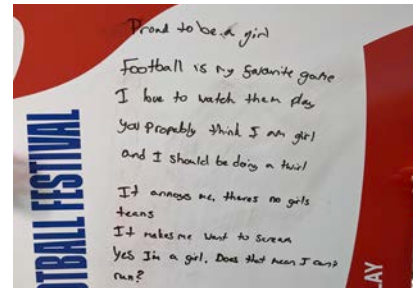 Proud to be a girl
Football is my favourite game
I love to watch them play
you propebly think I am girl
and I should be doing a twirl
It annoys me, theres no girls
teams
It makes me want to scream
Yes I'm a girl. Does that mean I can't
run?
OTBALL FESTIVAL
LAY